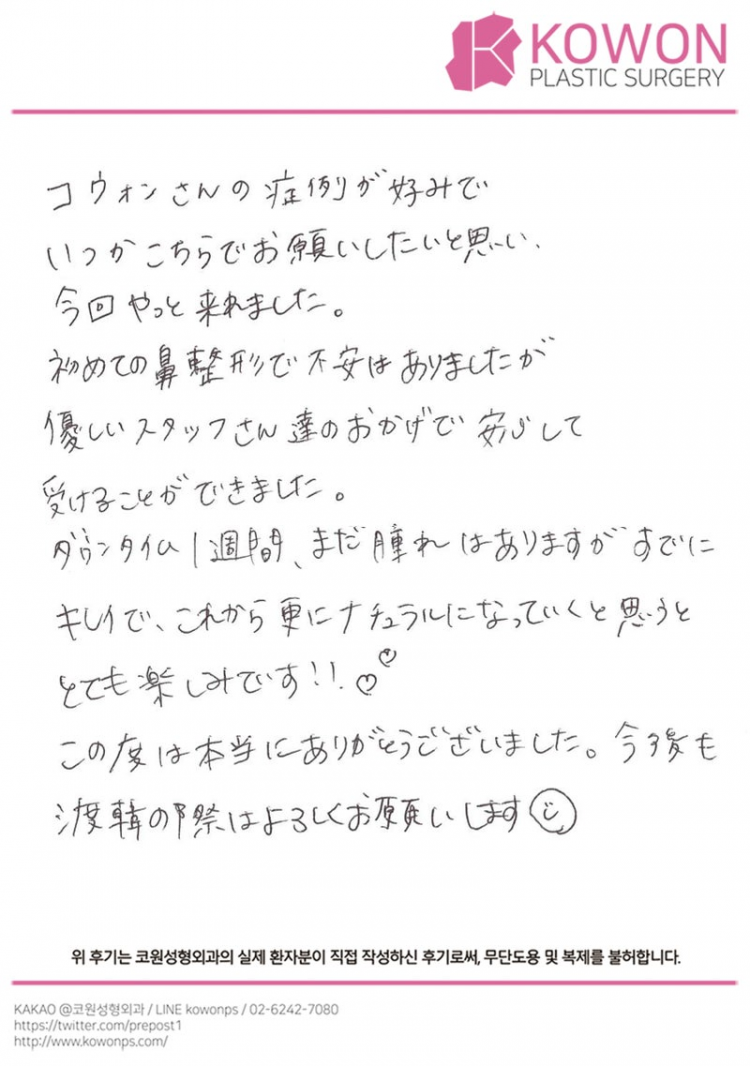 KOWON
PLASTIC SURGERY
コウォンさんの症例が好みで
いつかこちらでお願いしたいと思い、
今回やっと来れました。
初めての鼻整形で不安はありましたが
優しいスタッフさん達のおかげで安心して
受けることができました。
ダウンタイム1週間、まだ腫れはありますがすでに
キレイで、これから更にナチュラルになっていくと思うと
とても楽しみです!!♡♡
この度は本当にありがとうございました。今後も
渡韓の際はよろしくお願いします☺
위 후기는 코원성형외과의 실제 환자분이 직접 작성하신 후기로써, 무단도용 및 복제를 불허합니다.
KAKAO @코원성형외과 / LINE kowonps / 02-6242-7080
https://twitter.com/prepost1
http://www.kowonps.com/